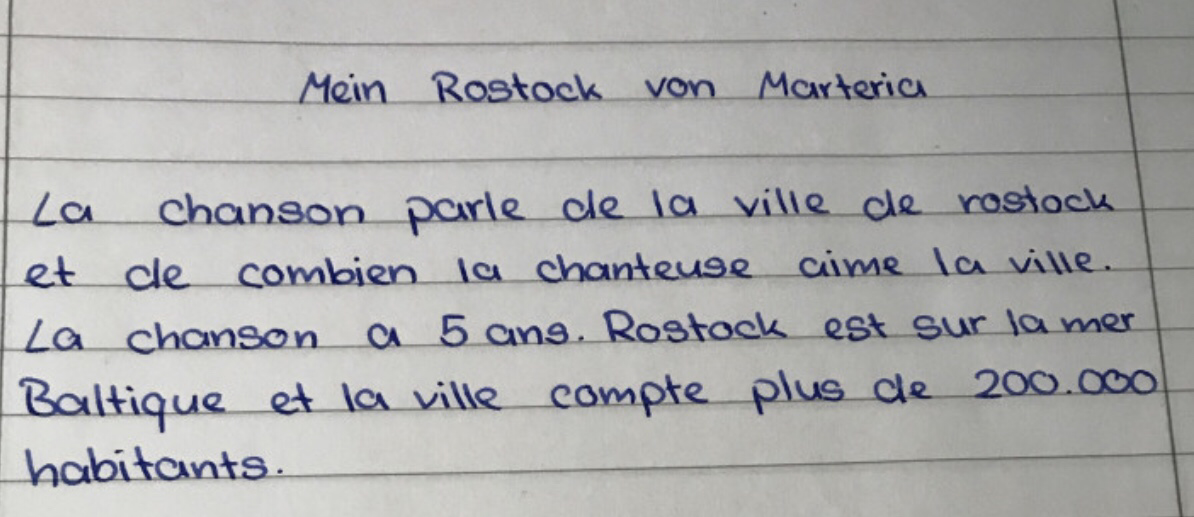 Mein Rostock von Marteria
La chanson parle de la ville de rostock
et de combien la chanteuse aime la ville.
La chanson a 5 ans. Rostock est sur la mer
Baltique et la ville compte plus de 200.000
habitants.